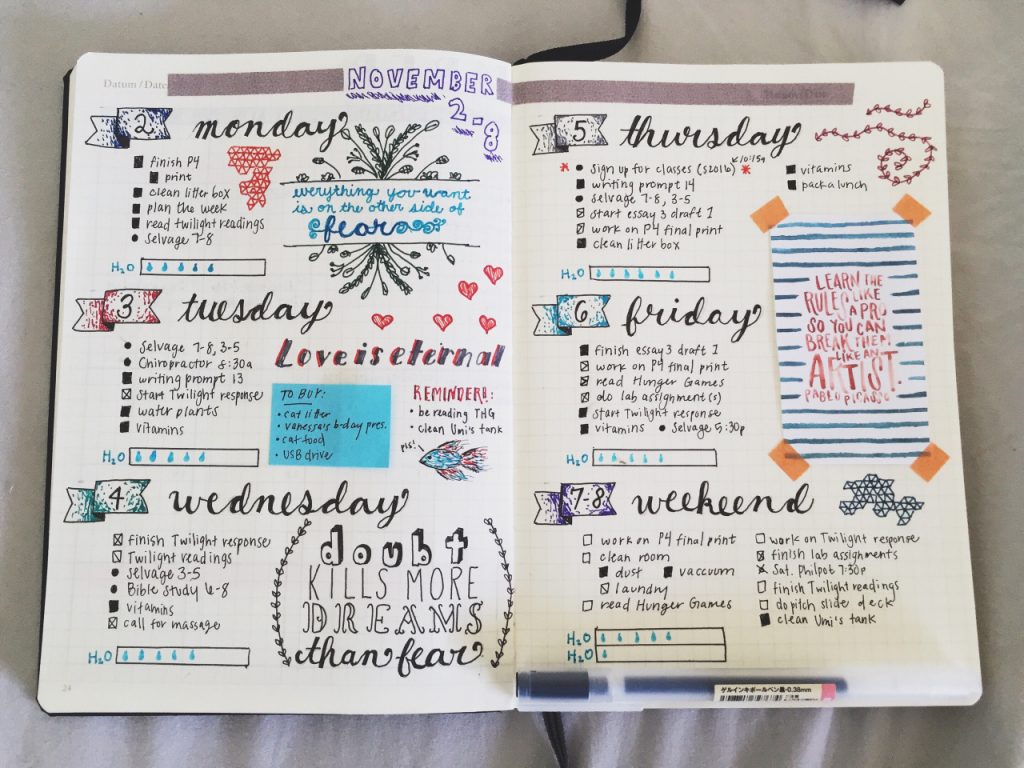 Datum / Date
NOVEMBER
2-8
2 monday
finish P4
print
clean litter box
plan the week
read twilight readings
Selvage 7-8
H₂O
everything you want
is on the other side of
fear
3 tuesday
Selvage 7-8, 3-5
Chiropractor 8:30a
writing prompt 13
Start Twilight response
water plants
vitamins
H₂O
Love is eternal
TO BUY:
• cat litter
• vanessa's b-day pres.
• cat food
• USB drive
REMINDER!:
• be reading THG
• clean Umi's tank
pls!
4 wednesday
finish Twilight response
Twilight readings
Selvage 3-5
Bible Study 6-8
vitamins
call for massage
H₂O
doubt
KILLS MORE
DREAMS
than fear
24
5 thursday
Sign up for classes (S2016)
writing prompt 14
Selvage 7-8, 3-5
start essay 3 draft 1
work on P4 final print
clean litter box
vitamins
pack a lunch
H₂O
LEARN THE
RULES LIKE
A PRO
SO YOU CAN
BREAK THEM
LIKE AN
ARTIST.
PABLO PICASSO
6 friday
finish essay 3 draft 1
work on P4 final print
read Hunger Games
do lab assignment(s)
start Twilight response
vitamins • Selvage 5:30p
H₂O
7-8 weekeend
work on P4 final print
clean room
dust vaccuum
laundry
read Hunger Games
work on Twilight response
finish lab assignments
Sat. Philpot 7:30p
finish Twilight readings
do pitch slide deck
clean Umi's tank
H₂O
H₂O
ゲルインキボールペン黒・0.38mm